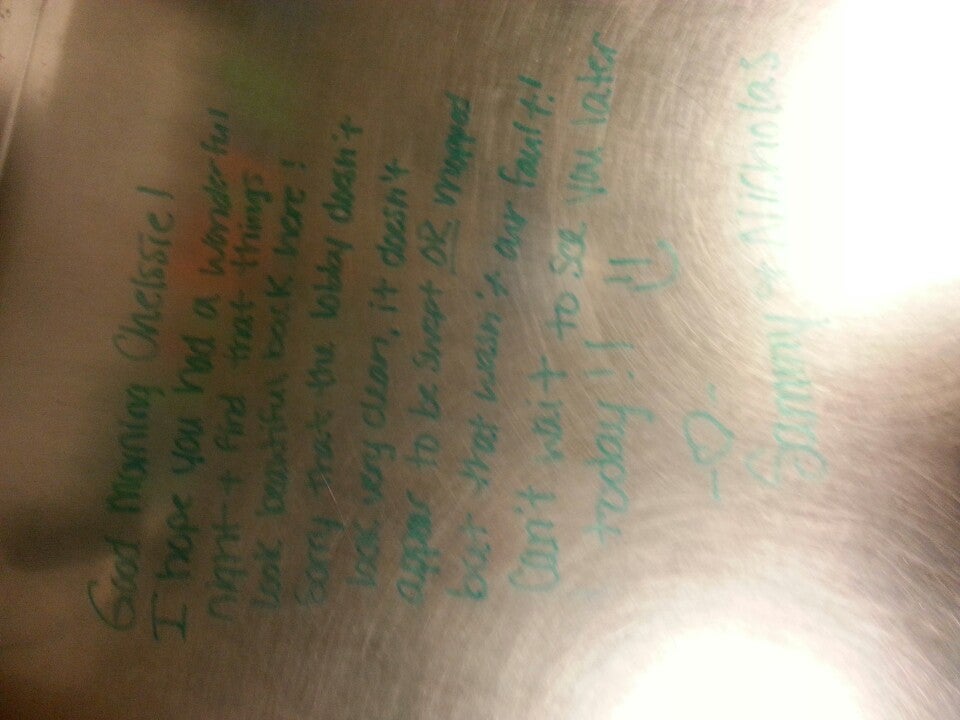 Good Morning Chelssie!
I hope you had a wonderful
night + find that things
look beautiful back here!
Sorry that the lobby doesn't
look very clean, it doesn't
appear to be swept OR mopped
but that wasn't our fault!
Can't wait to see you later
today! ! :)
-♡-
Sammy + Nicholas